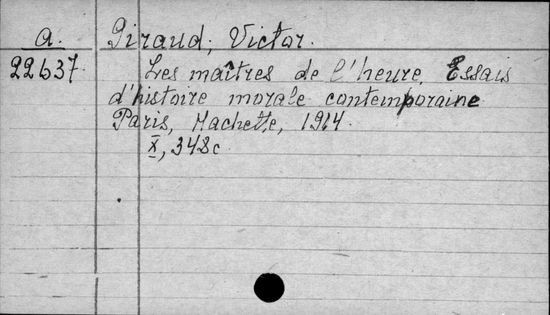 a. Giraud, Victor.
22637 Les maîtres de l'heure. Essais
d'histoire morale contemporaine
Paris, Hachette, 1914.
X, 348c